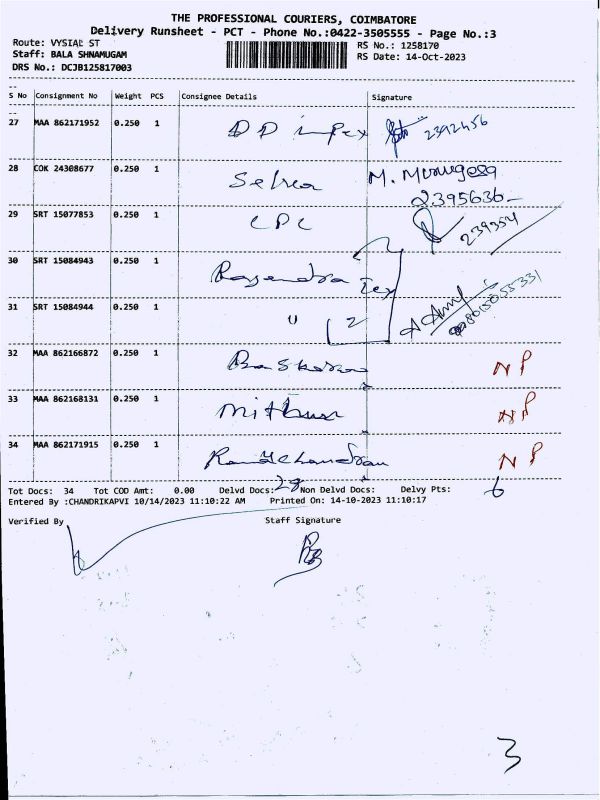 THE PROFESSIONAL COURIERS, COIMBATORE
Delivery Runsheet - PCT - Phone No.:0422-3505555 - Page No.:3
Route: VYSIAL ST
RS No.: 1258170
Staff: BALA SHNAMUGAM
RS Date: 14-Oct-2023
DRS No.: DCJB125817003
S No Consignment No Weight PCS Consignee Details Signature
27 MAA 862171952 0.250 1 DD impex 2392456
28 COK 24308677 0.250 1 Selvea M. Murugesa
2395636
29 SRT 15077853 0.250 1 CPC 239354
30 SRT 15084943 0.250 1 Rajendra Tex
31 SRT 15084944 0.250 1 " 2
32 MAA 862166872 0.250 1 Baskaran NP
33 MAA 862168131 0.250 1 Mithun NP
34 MAA 862171915 0.250 1 Ramachandran NP
Tot Docs: 34 Tot COD Amt: 0.00 Delvd Docs: 28 Non Delvd Docs: 6 Delvy Pts:
Entered By :CHANDRIKAPVI 10/14/2023 11:10:22 AM Printed On: 14-10-2023 11:10:17
Verified By Staff Signature
3